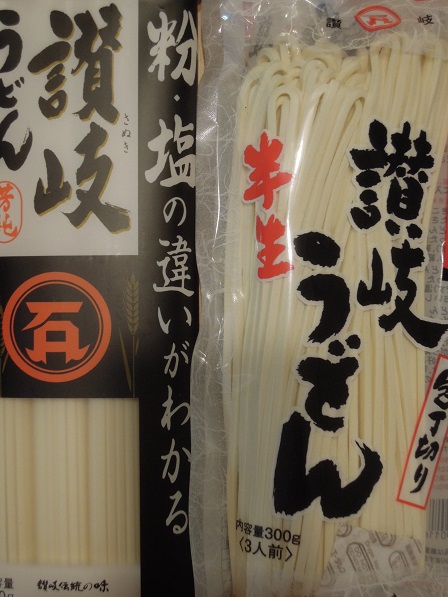 讃岐
さぬき
うどん
粉・塩の違いがわかる
讃岐伝統の味
讃 岐
半生
讃岐
うどん
包丁切り
内容量300g
〈3人前〉